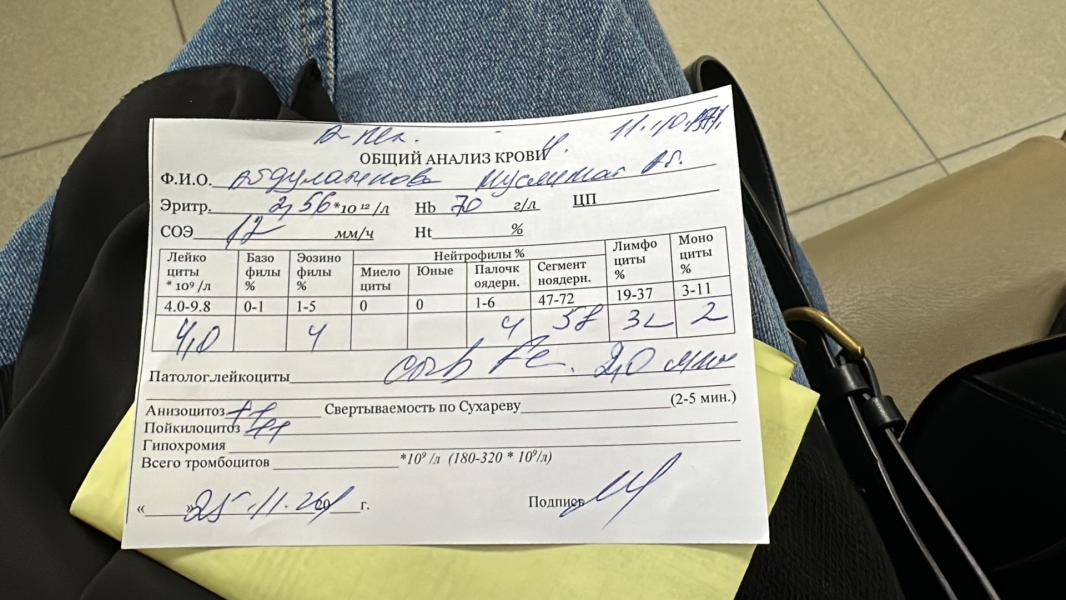 11.10.
ОБЩИЙ АНАЛИЗ КРОВИ
Ф.И.О.
Эритр. 2,56 *10 12 /л Hb 70 г/л ЦП
СОЭ 12 мм/ч Ht %
Лейко циты * 10⁹ /л Базо филы % Эозино филы % Нейтрофилы % Лимфо циты % Моно циты %
Миело циты Юные Палочк оядерн. Сегмент ноядерн.
4.0-9.8 0-1 1-5 0 0 1-6 47-72 19-37 3-11
4,0 4 4 58 32 2
Патолог.лейкоциты 2,0
Анизоцитоз ++ Свертываемость по Сухареву (2-5 мин.)
Пойкилоцитоз ++
Гипохромия
Всего тромбоцитов *10⁹ /л (180-320 * 10⁹/л)
« » 25.11.24 20 г. Подпись